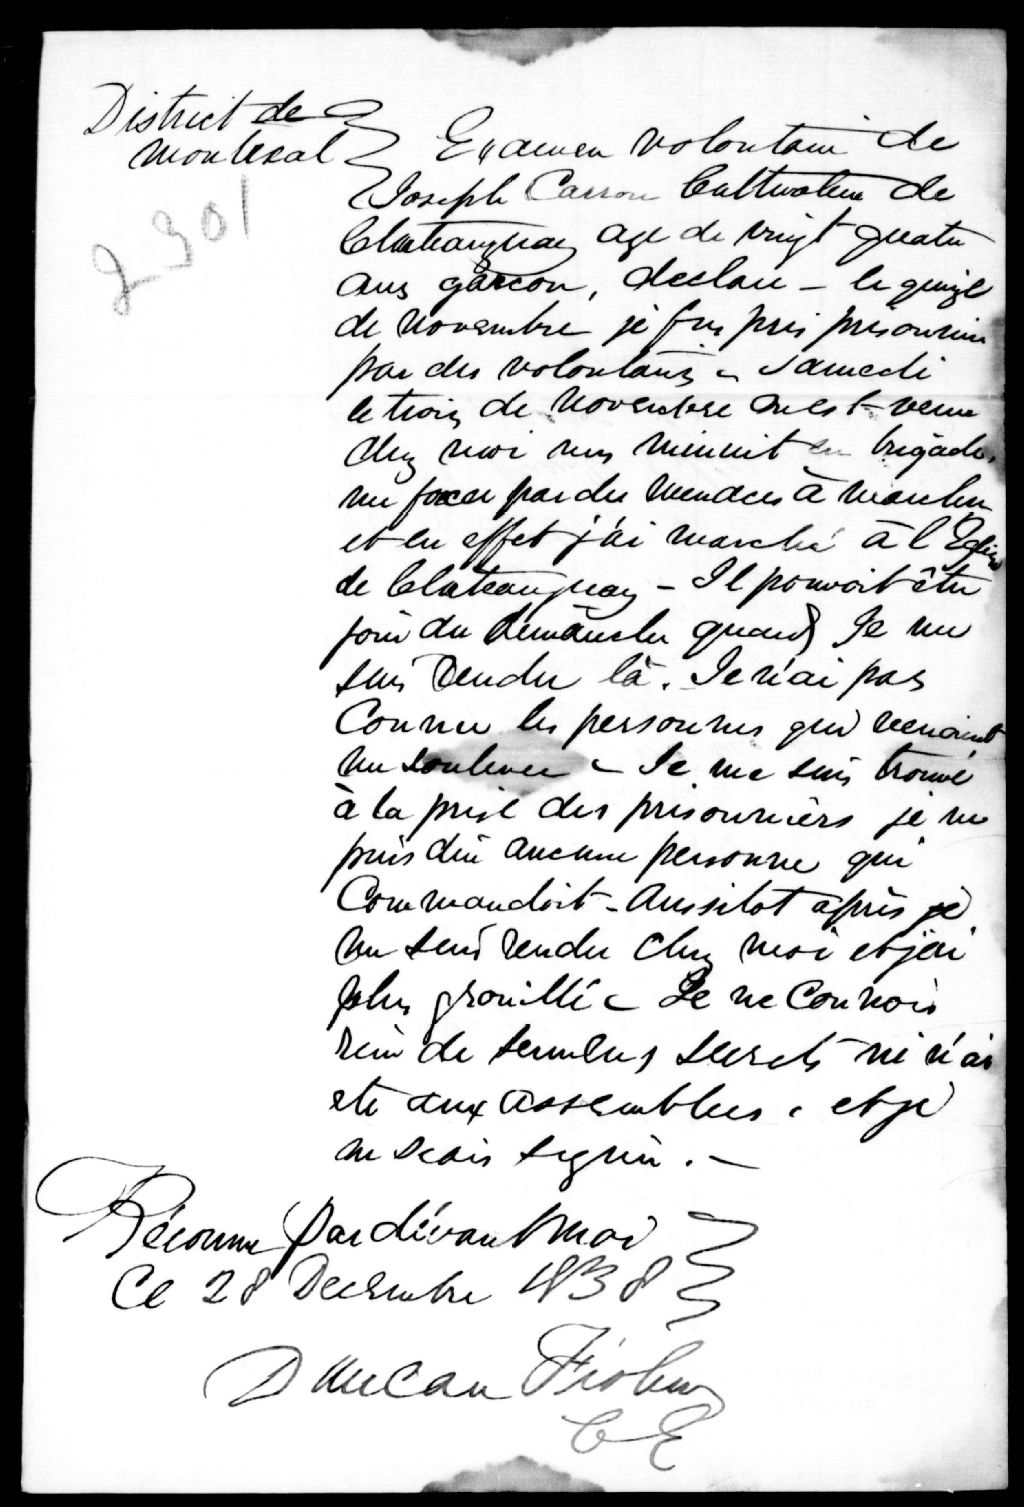 District de
Montreal
2901
Examen volontaire de
Joseph Carron Cultivateur de
Chateauguay age de vingt quatre
ans garcon, declare - le quinze
de Novembre je fus pris prisonnier
par des volontaires - Samedi
le trois de Novembre on est venu
chez moi vers minuit en brigade,
me forcer par des menaces à marcher
et en effet j'ai marché à l'Eglise
de Chateauguay - Il pouvoit être
jour du Dimanche quand Je me
suis rendu là. Je n'ai pas
Connu les personnes qui venaient
me soulever - Je me suis trouvé
à la prise des prisonniers je ne
puis dire aucune personne qui
Commandoit - Aussitot après je
me suis rendu chez moi et j'ai
plus grouillé - Je ne Connois
rien de sermens secrets ni n'ai
été aux assemblees, et je
ne scais signer. -
Réconnu par dévant moi
Ce 28 Decembre 1838
Duncan